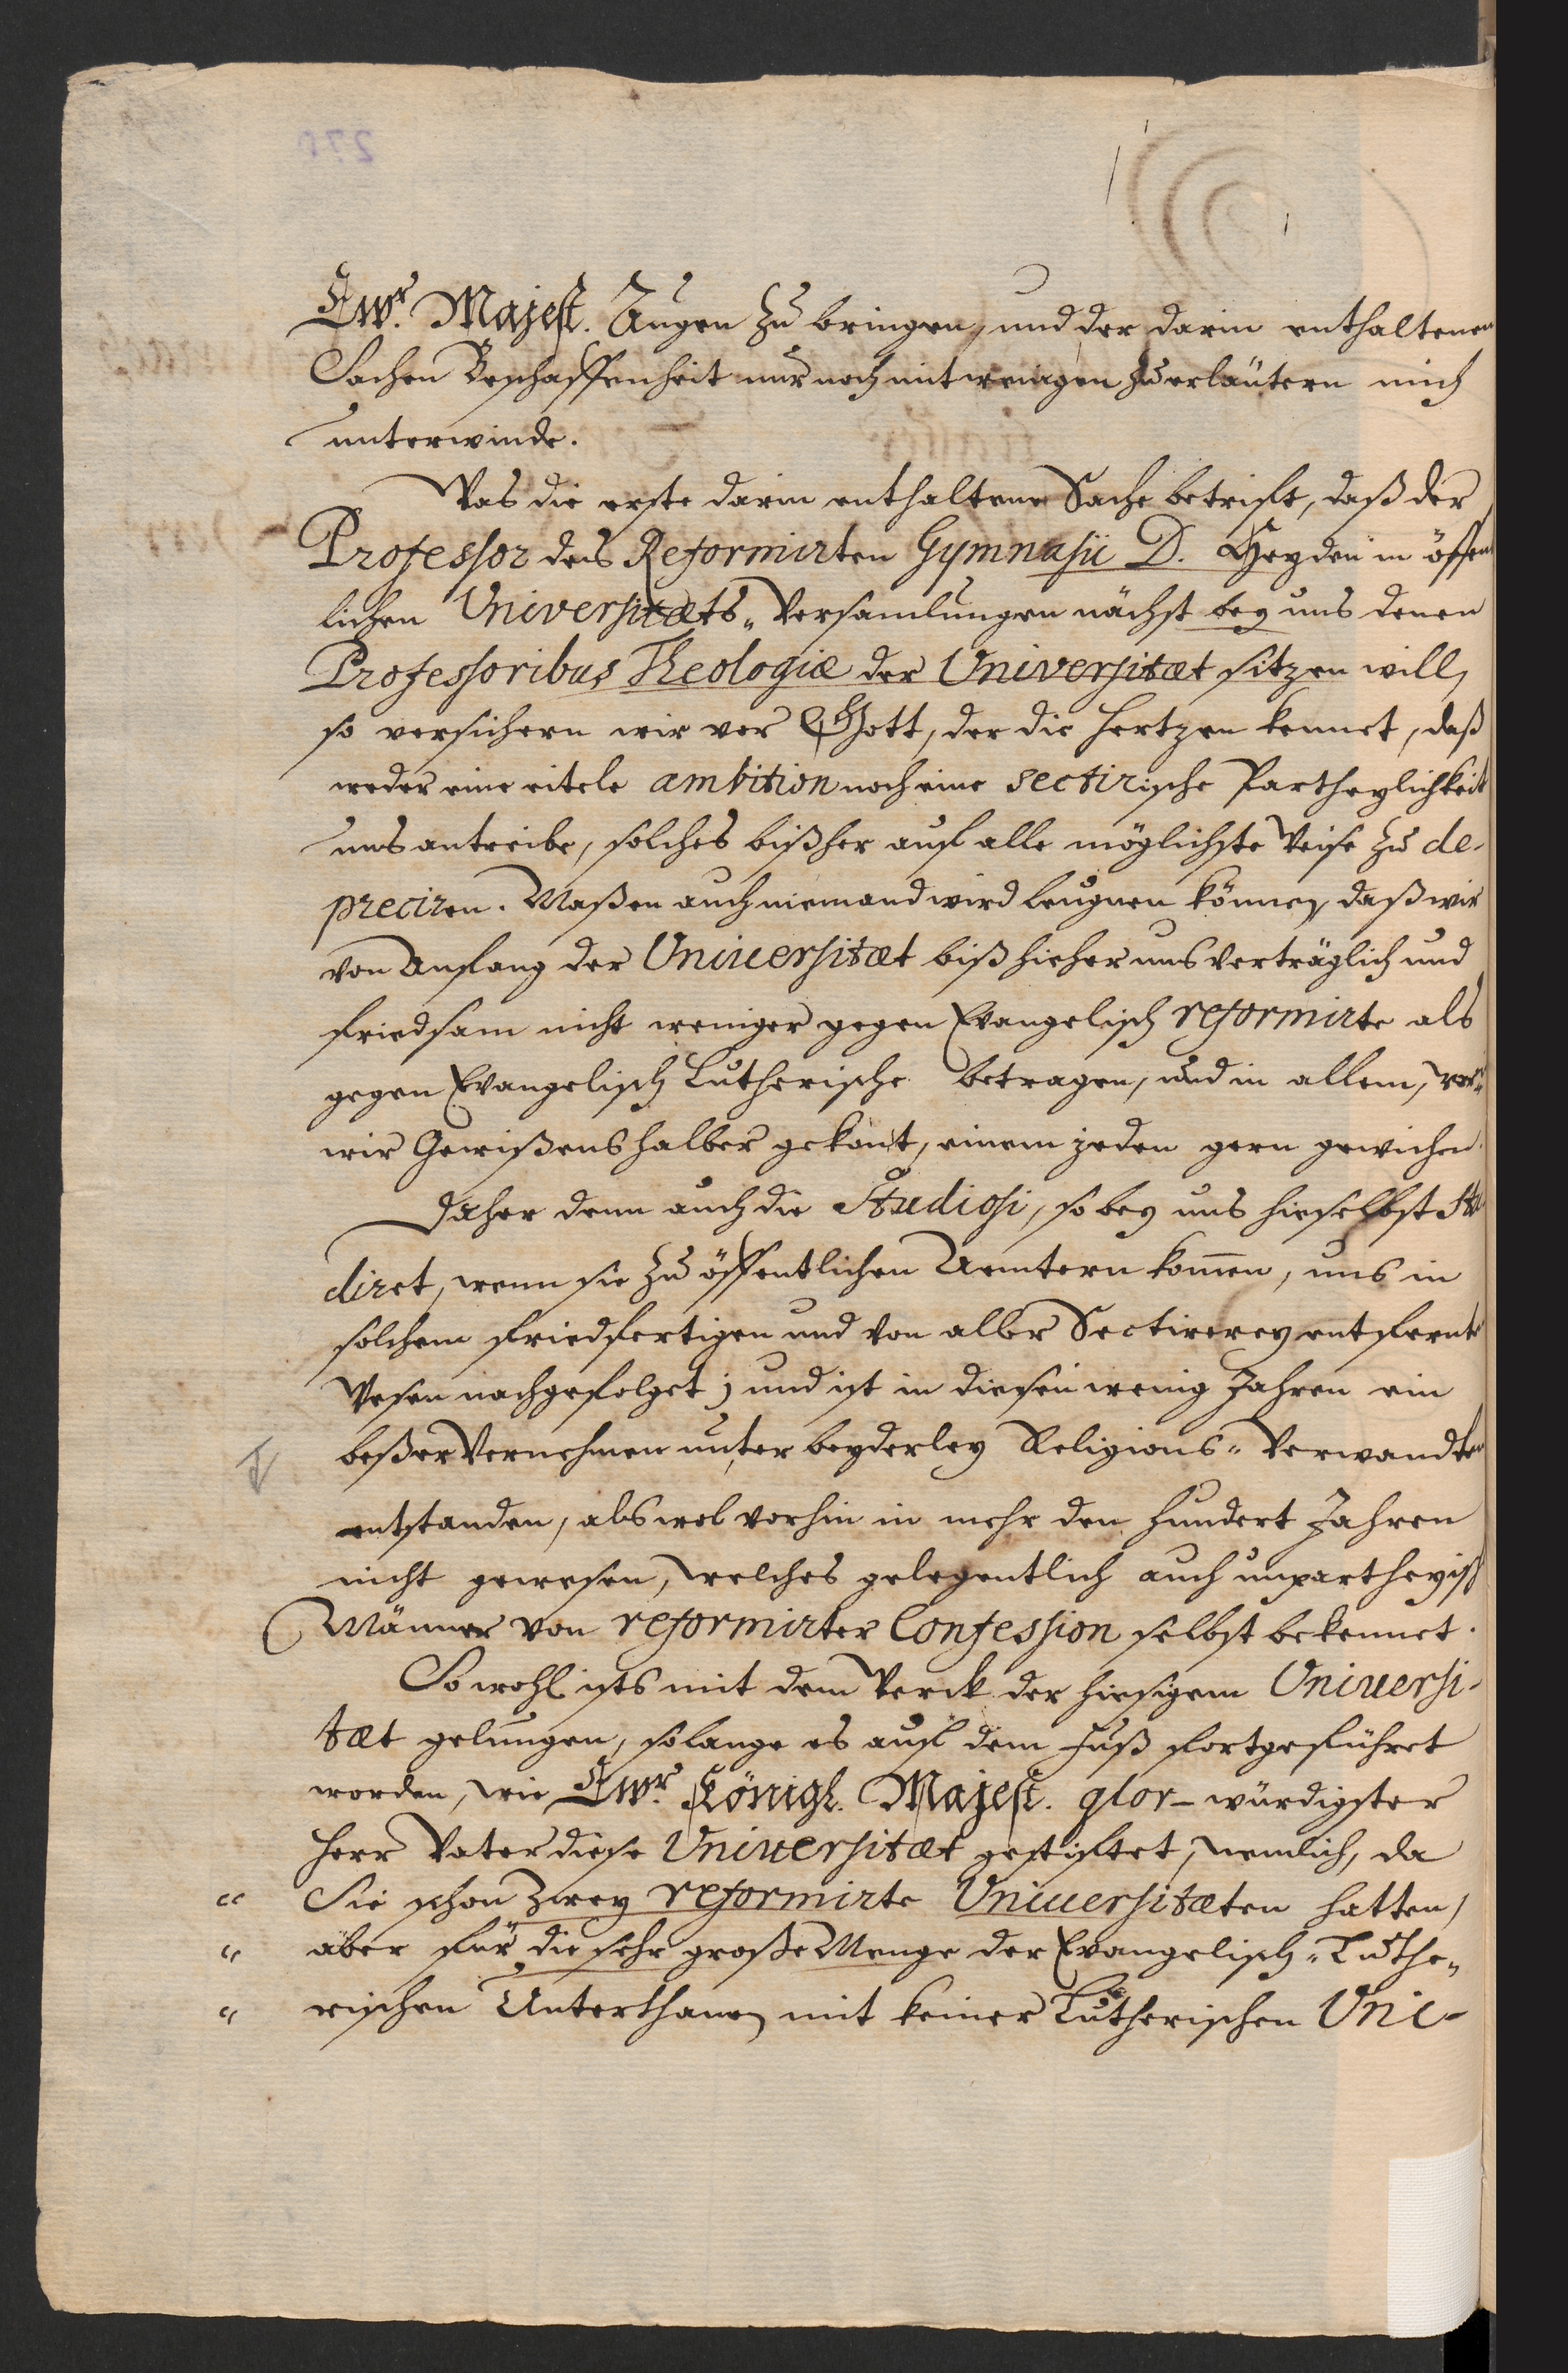 Ewr. Majest. Augen zu bringen, und der darin enthaltenen
Sachen Beschaffenheit nur noch mit wenigen zu erläutern mich
unterwinde.
Was die erste darin enthaltene Sache betrift, daß der
Professor des Reformirten Gymnasii D. Heyden in öffen
lichen Universitæts„ Versamlungen nächst bey uns denen
Professoribus Theologiæ der Universitæt sitzen will,
so versichern wir vor Gott, der die Hertzen kennet, daß
weder eine eitele ambition noch eine sectirische Partheylichkeit
uns antreibe, solches bißher auf alle möglichste Weise zu de-
preciren. Maßen auch niemand wird leugnen können, daß wir
von Anfang der Universitæt biß hieher uns verträglich und
friedsam nicht weniger gegen Evangelisch reformirte als
gegen Evangelisch Lutherische betragen, und in allem,
wir Gewißens halber gekönt, einem jeden gern gewichen.
Daher denn auch die Studiosi, so bey uns hieselbst stu
diret, wenn sie zu öffentlichen Aemtern kom̄en, uns in
solchem friedfertigen und von aller Sectirerey entfernte
Wesen nachgefolget; und ist in diesen wenig Jahren ein
beßer Vernehmen unter beyderley Religions„ Verwandten
entstanden, als wol vorhin in mehr den hundert Jahren
nicht gewesen, welches gelegentlich auch unpartheyisch
Männer von reformirter Confession selbst bekennet.
So wohl ists mit dem Werck der hiesigem Universi-
tæt gelungen, solange es auf dem Fuß fortgeführet
worden, wie Ewr. Königl. Majest. glor-würdigster
Herr Vater diese Universitæt gestiftet, nemlich, da
“ Sie schon zwey reformirte Universitæten hatten,
“ aber für die sehr große Menge der Evangelisch„ Luthe„
“ rischen Unterthanen mit keiner Lutherischen Uni-